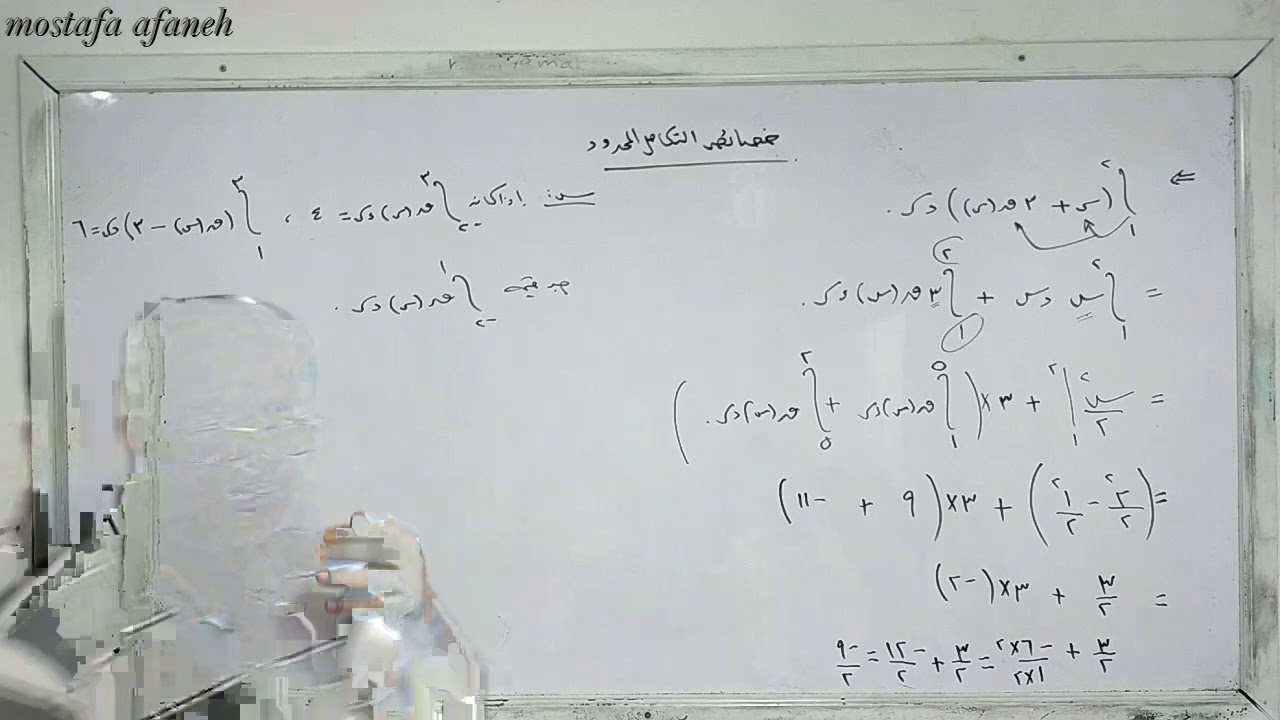 mostafa afaneh
خصائص التكامل المحدود
⇐ ∫₁² (س + ٣ ق(س)) دس .
= ∫₁² س دس + ∫₁² ٣ ق(س) دس .
= س²/٢ |₁² + ٣ × ( ∫₁⁵ ق(س) دس + ∫₅² ق(س) دس . )
= (٢²/٢ − ١²/٢) + ٣ × (٩ + −١١)
= ٣/٢ + ٣ × (−٢)
٣/٢ + −٦×٢/١×٢ = ٣/٢ + −١٢/٢ = −٩/٢
س: اذا كان ∫₋₂³ ق(س) دس = ٤ ، ∫₁³ (ق(س) − ٣) دس = ٦
جد قيمة ∫₋₂¹ ق(س) دس .